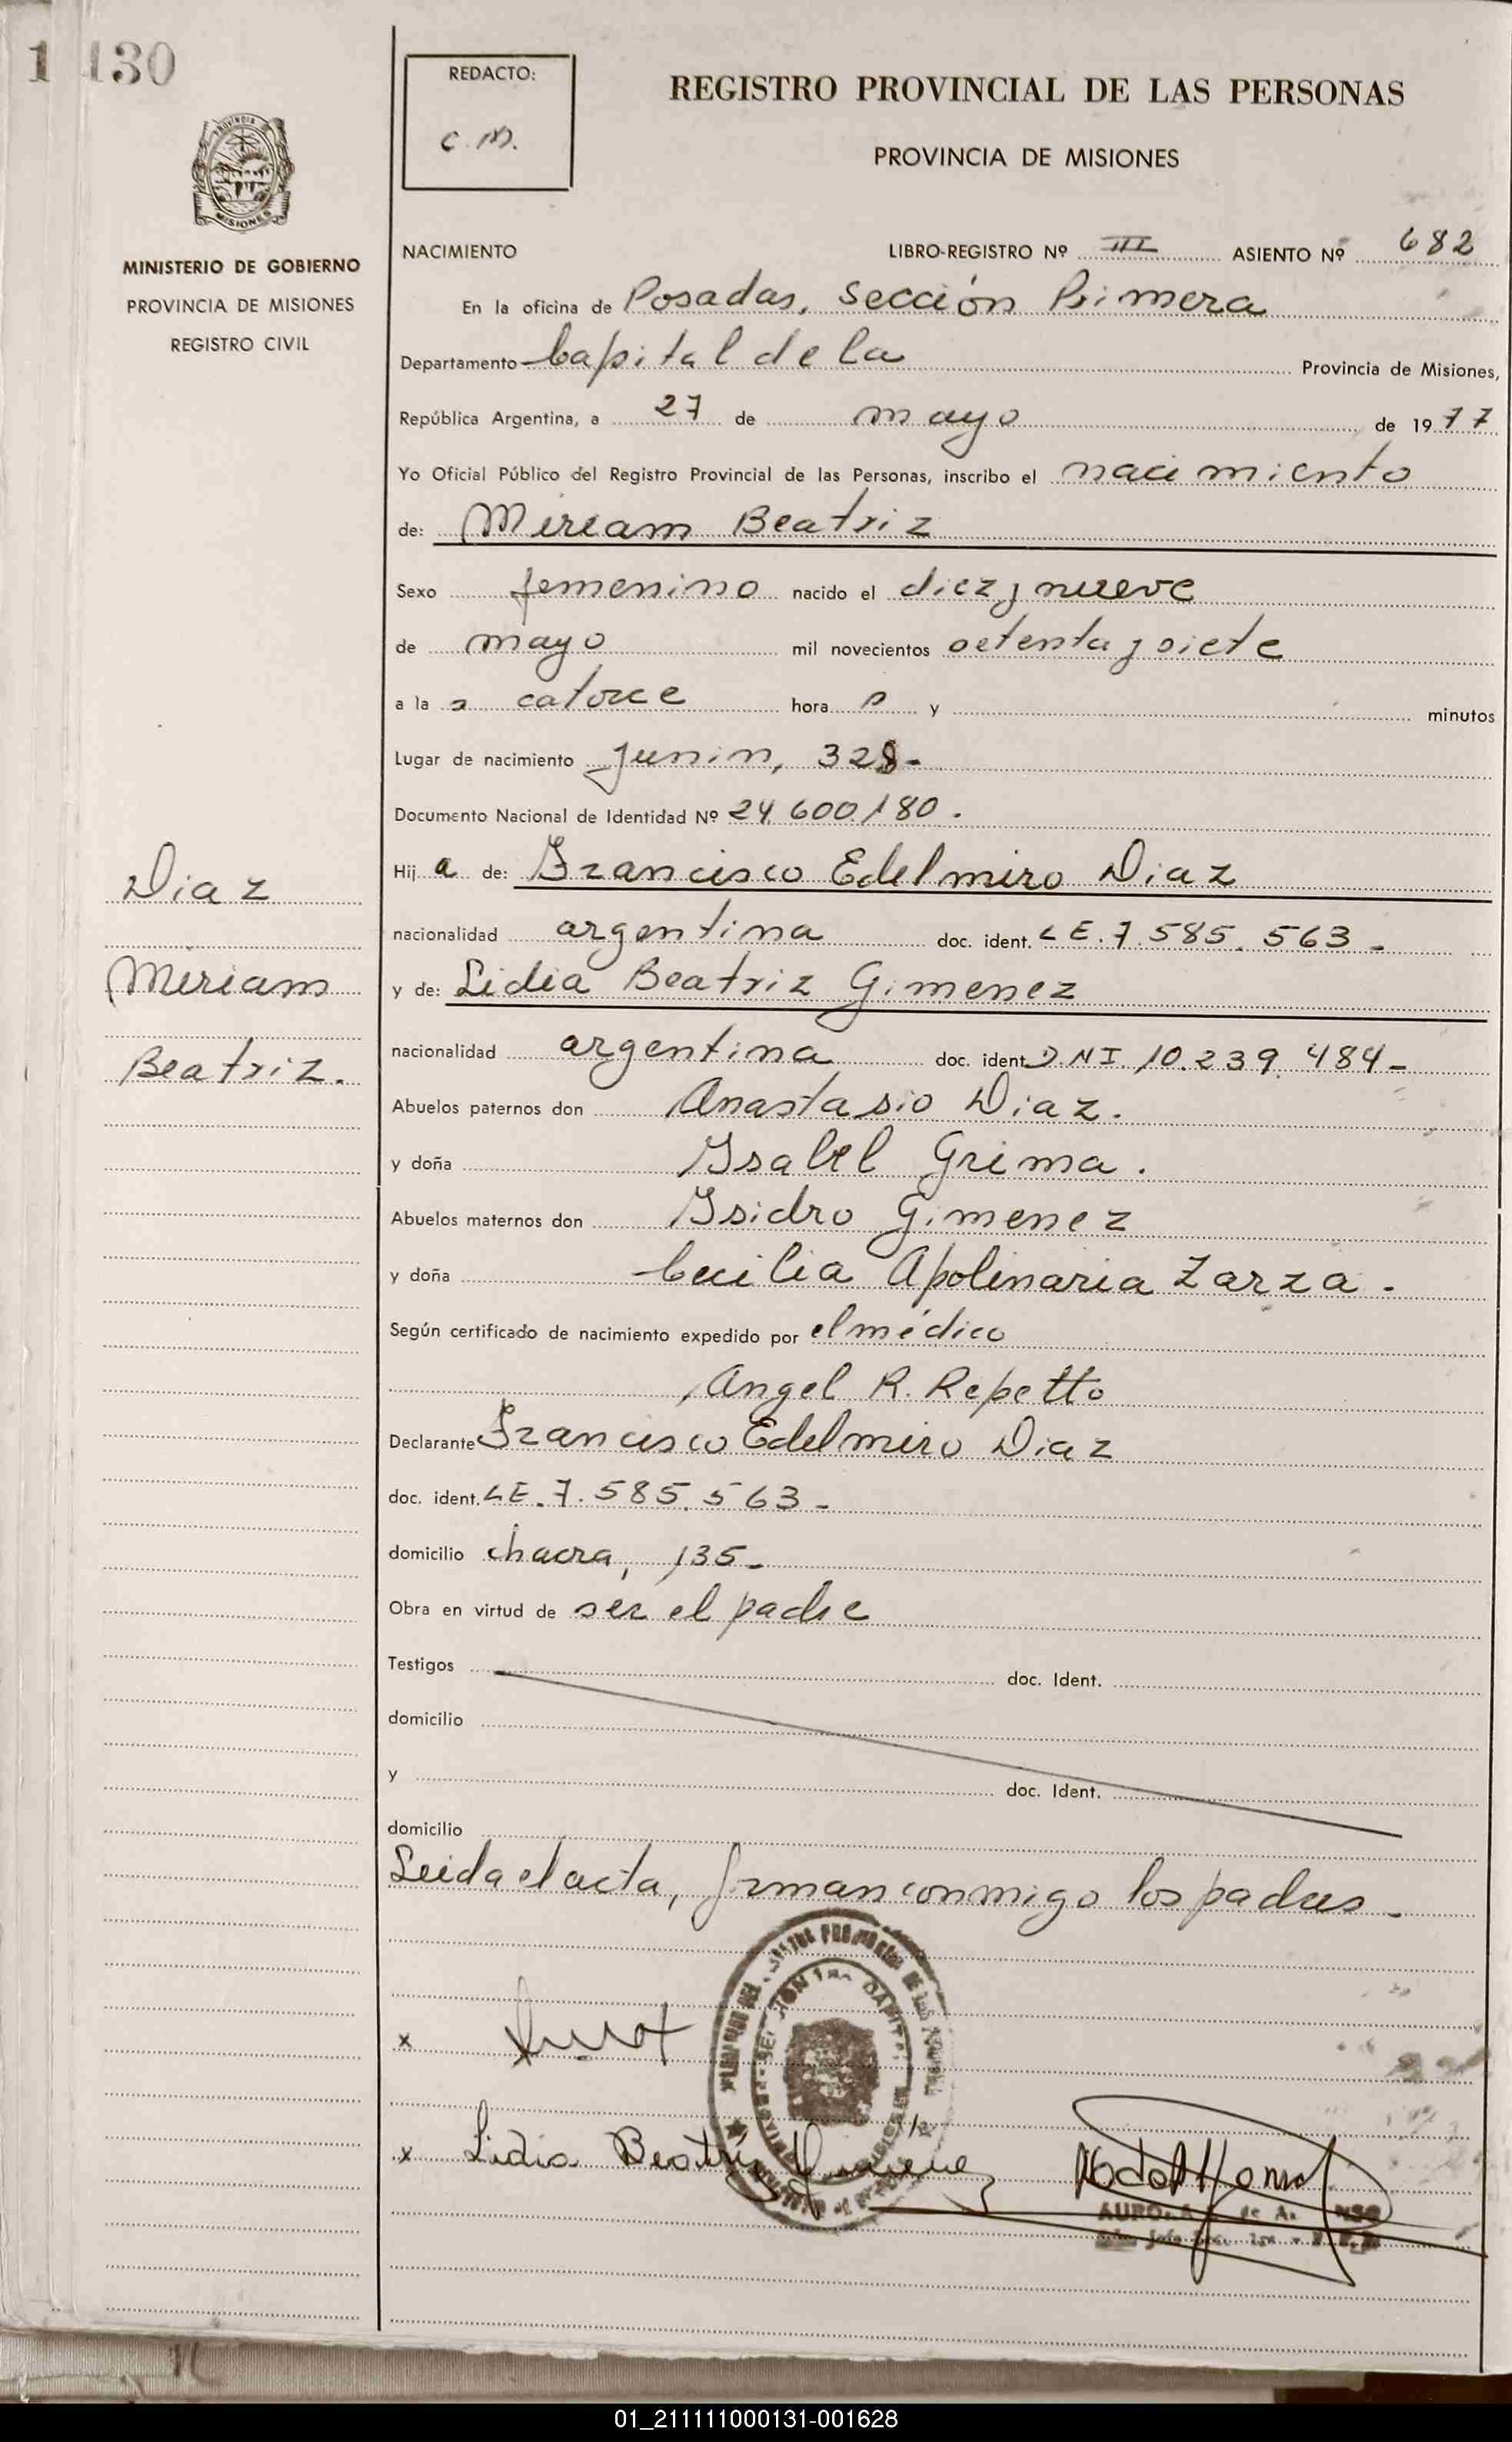 1 130
REDACTO:
C.M.
REGISTRO PROVINCIAL DE LAS PERSONAS
PROVINCIA DE MISIONES
PROVINCIA
MISIONES
MINISTERIO DE GOBIERNO
PROVINCIA DE MISIONES
REGISTRO CIVIL
NACIMIENTO LIBRO-REGISTRO Nº III ASIENTO Nº 682
En la oficina de Posadas, Sección Primera
Departamento Capital de la Provincia de Misiones,
República Argentina, a 27 de mayo de 1977
Yo Oficial Público del Registro Provincial de las Personas, inscribo el nacimiento
de: Miriam Beatriz
Sexo femenino nacido el diez y nueve
de mayo mil novecientos setenta y siete
a la s catorce hora s y minutos
Lugar de nacimiento Junin, 328-
Documento Nacional de Identidad Nº 24.600.180.
Hij a de: Francisco Edelmiro Diaz
nacionalidad argentina doc. ident. LE. 7.585.563-
y de: Lidia Beatriz Gimenez
nacionalidad argentina doc. ident. DNI 10.239.484-
Abuelos paternos don Anastasio Diaz.
y doña Ysabel Grima.
Abuelos maternos don Ysidro Gimenez
y doña Cecilia Apolinaria Zarza-
Según certificado de nacimiento expedido por el médico
Angel R. Repetto
Declarante Francisco Edelmiro Diaz
doc. ident. LE. 7.585.563-
domicilio chacra, 135-
Obra en virtud de ser el padre
Testigos doc. Ident.
domicilio
y doc. Ident.
domicilio
Leida el acta, firman conmigo los padres-
x
x Lidia Beatriz Gimenez
Diaz
Miriam
Beatriz.
01_211111000131-001628